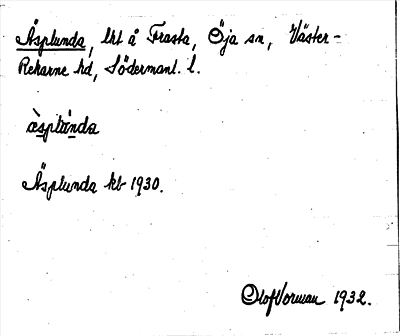 Äsplunda, lht å Trasta, Öja sn, Väster-
Rekarne hd, Södermanl. l.
Äsplunda kb 1930.
Olof Vorman 1932.